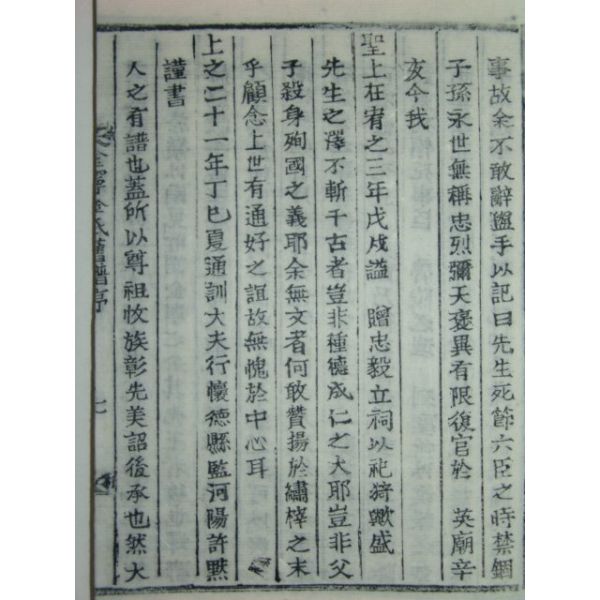 事故余不敢辭盥手以記曰先生死節六臣之時禁錮
子孫永世無稱忠烈彌天褒異有限復官於 英廟辛
亥今我
聖上在宥之三年戊戌謚 贈忠毅立祠以祀猗歟盛
先生之澤不斬千古者豈非種德成仁之大耶豈非父
子殺身殉國之義耶余無文者何敢贊揚於繡梓之末
乎顧念上世有通好之誼故無愧於中心耳
上之二十一年丁巳夏通訓大夫行懷德縣監河陽許黙
謹書
人之有譜也蓋所以尊祖收族彰先美詔後承也然大
金寧金氏舊譜序